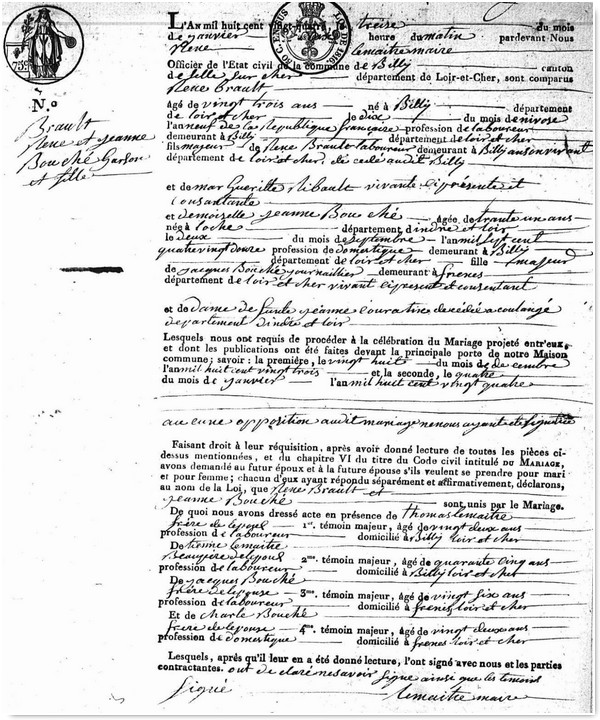 L'An mil huit cent vingt quatre treize du mois
de janvier heure du matin pardevant Nous
Rene lemaitre maire
Officier de l'Etat civil de la commune de Billy canton
de selle sur cher département de Loir-et-Cher, sont comparus
Rene Brault
Agé de vingt trois ans né à Billy département
de loir et cher le dix du mois de nivose
l'an neuf de la Republique francaise profession de laboureur
demeurant à Billy département de loir et cher
fils majeur de Rene Brault laboureur demeurant à Billy en son vivant
département de loir et cher décedé audit Billy
et de marGueritte Ribault vivante ci présente et
consantante
et demoiselle jeanne Bouché Agée de trante un ans
née à loche département d'indre et loir
le deux du mois de septembre l'an mil sept cent
quatre vingt douze profession domestique demeurant à Billy
département de loir et cher fille majeur
de jacques Bouché journallier demeurant à frenes
département de loir et cher vivant ci present et consentant
et de dame defunte jeanne couratin décédée a coulangé
departement d'indre et loir
Lesquels nous ont requis de procéder à la célébration du Mariage projeté entr'eux,
et dont les publications ont été faites devant la principale porte de notre Maison
commune; savoir: la première, le vingt huit du mois de decembre
l'an mil huit cent vingt trois et la seconde, le quatre
du mois de janvier l'an mil huit cent vingt quatre
aucune opposition audit mariage ne nous ayant été signifiée
Faisant droit à leur réquisition, après avoir donné lecture de toutes les pièces ci-
dessus mentionnées, et du chapitre VI du titre du Code civil intitulé DU MARIAGE,
avons demandé au futur époux et à la future épouse s'ils veulent se prendre pour mari
et pour femme; chacun d'eux ayant répondu séparément et affirmativement, déclarons,
au nom de la Loi, que Rene Brault et
jeanne Bouché sont unis par le Mariage.
De quoi nous avons dressé acte en présence de thomas lemaitre
frère de lepoul 1er. témoin majeur, âgé de vingt deux ans
profession de laboureur domicilié à Billy loir et cher
De tienne lemaitre
Beaupère de lepoul 2me. témoin majeur, âgé de quarante cinq ans
profession de laboureur domicilié à Billy loir et cher
De jacques Bouché
frère de lepouse 3me. témoin majeur, âgé de vingt six ans
profession de laboureur domicilié à frenes loir et cher
Et de charle Bouché
frère de lepouse 4me. témoin majeur, âgé de vingt deux ans
profession de domestique domicilié à frenes loir et cher
Lesquels, après qu'il leur en a été donné lecture, l'ont signé avec nous et les parties
contractantes. ont declaré ne savoir signe ainsi que les temoins
signé lemaitre maire
N.º
Brault
Rene et jeanne
Bouché Garson
et fille